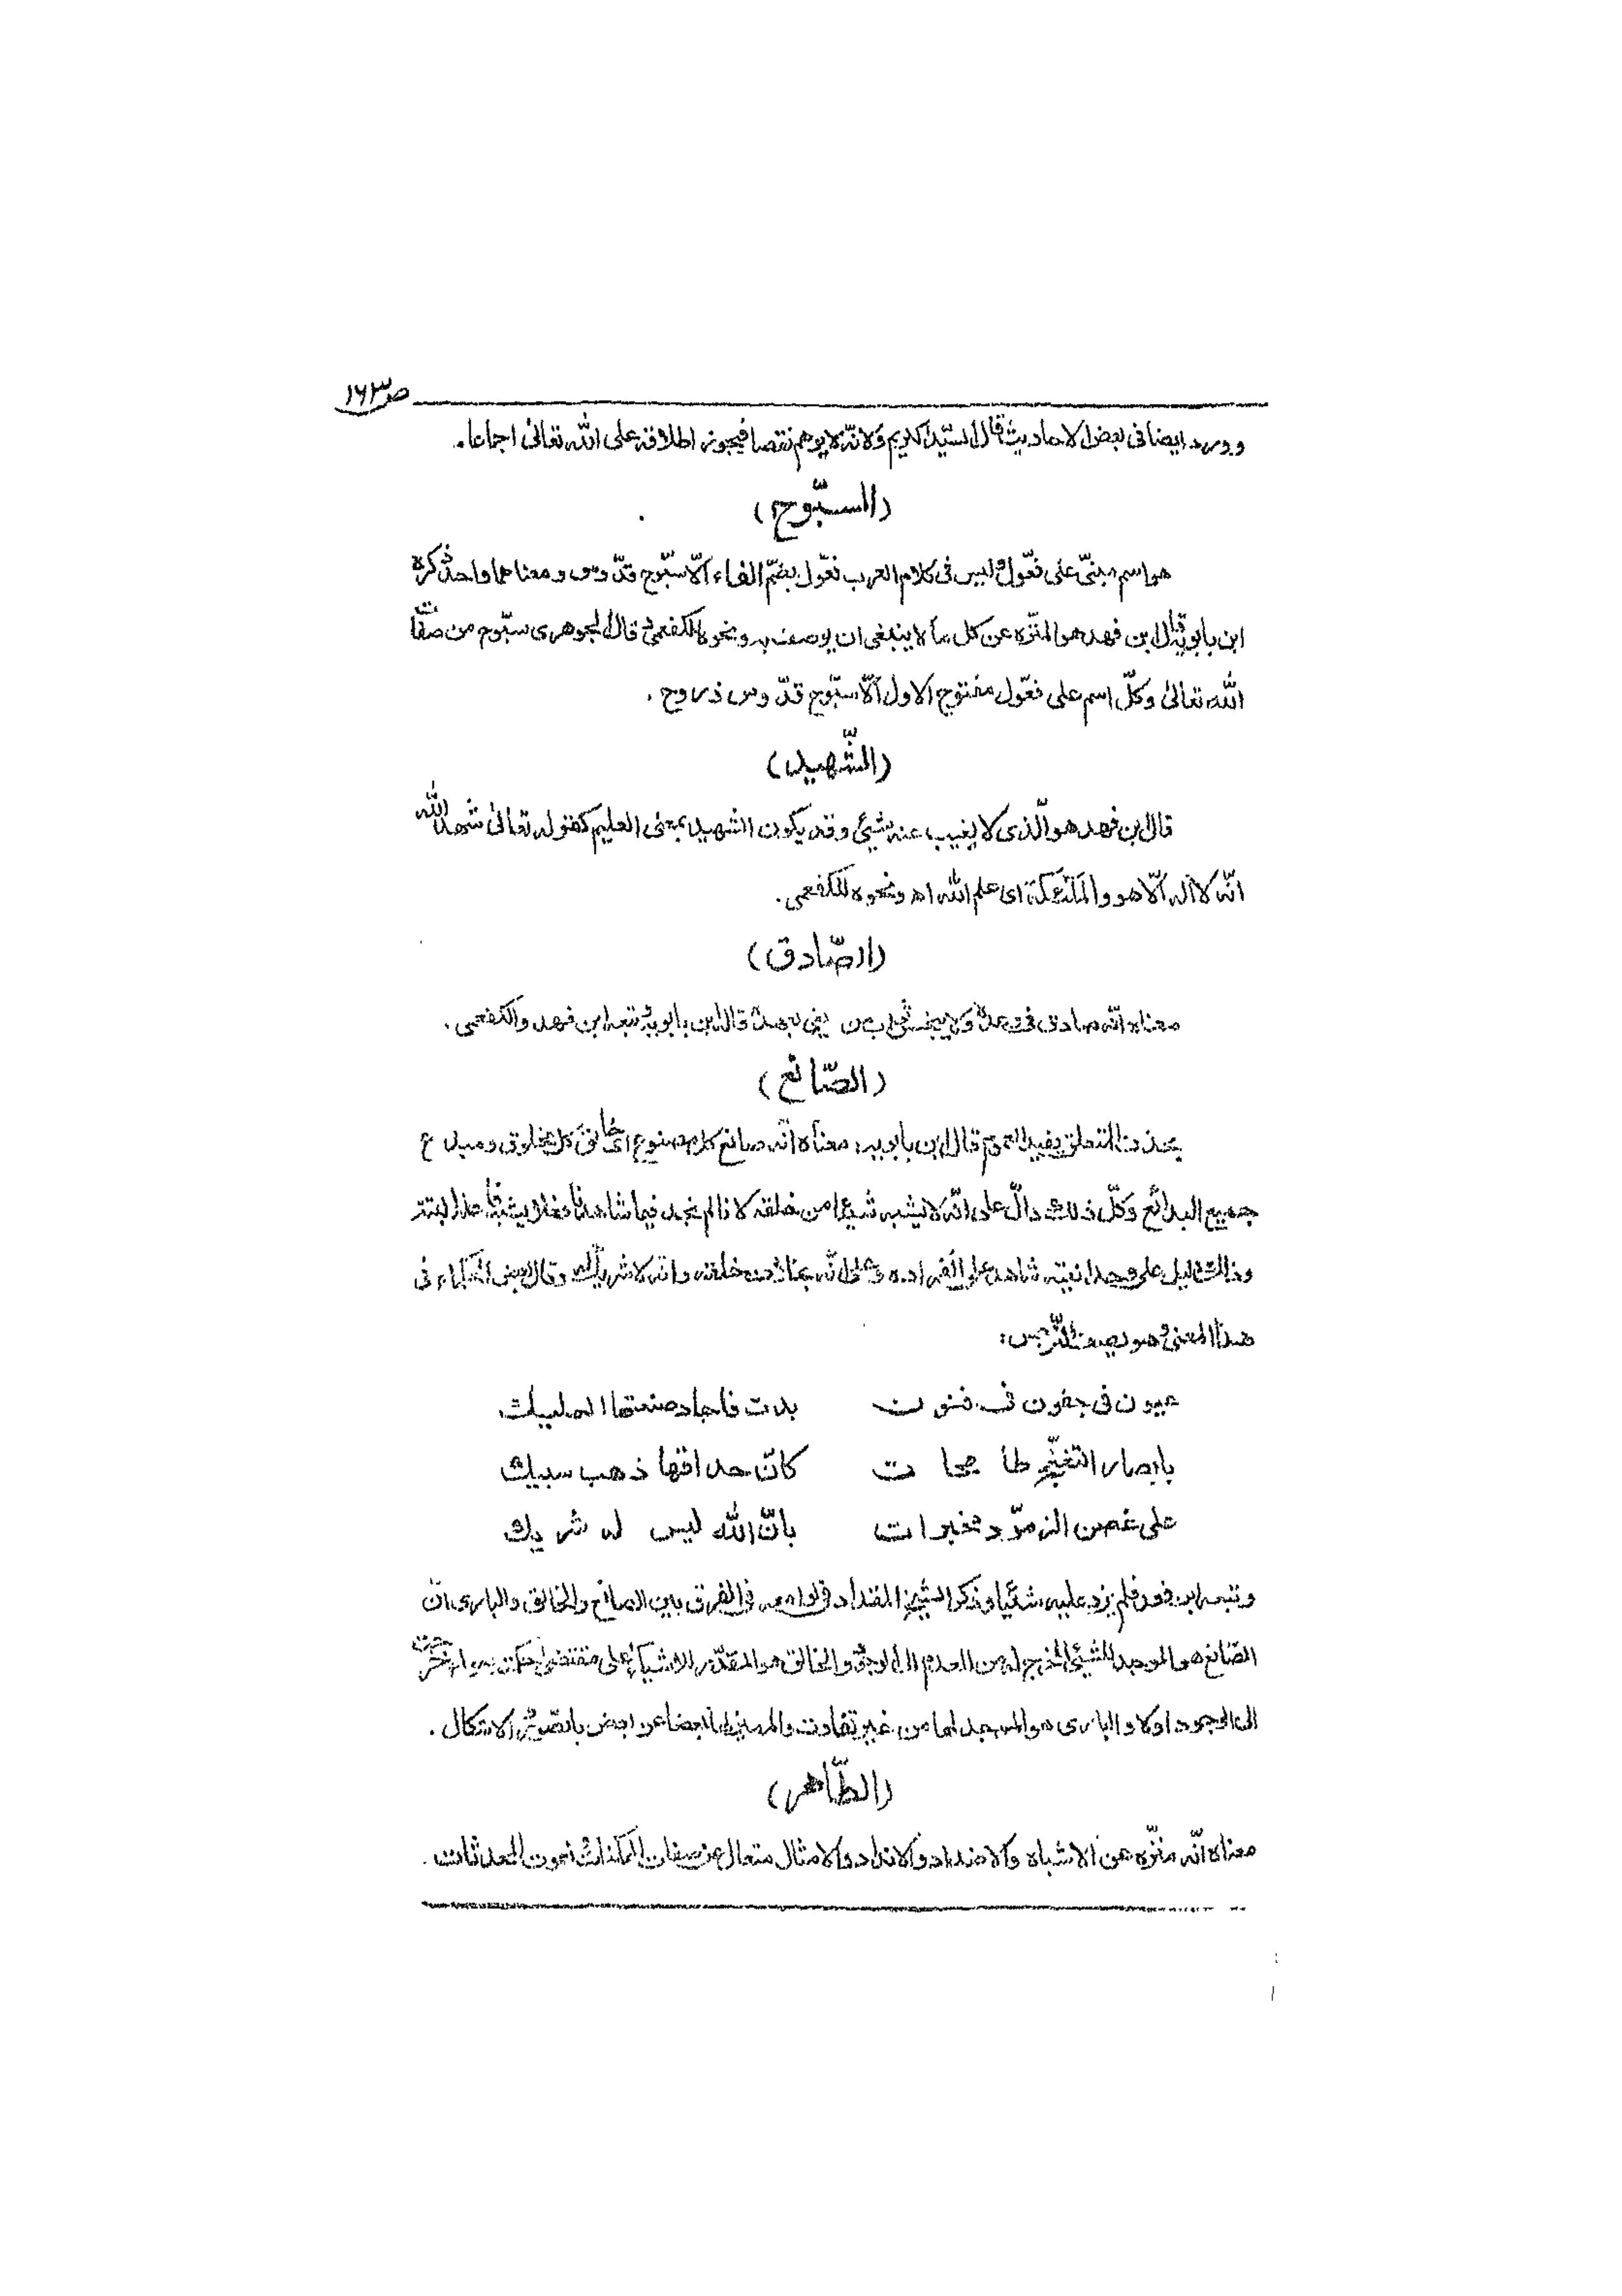 ص ۱۶۳
وورد ايضا فى بعض الاحاديث قال السّيد الكريم ولانّه لا يوهم نقصا فيجوز اطلاقه على الله تعالى اجماعا.
(السبّوح)
هو اسم مبنىّ على فعّول وليس فى كلام العرب فعّول بضمّ الفاء الّا سبّوح قدّوس ومعناهما واحد ذكره
ابن بابويه قال ابن فهد هو المنزّه عن كل ما لا ينبغى ان يوصف به ونحوه الكفعمى قال الجوهرى سبّوح من صفات
الله تعالى وكلّ اسم على فعّول مفتوح الاول الّا سبّوح قدّوس ذروح.
(الشّهيد)
قال بن فهد هو الّذى لا يغيب عنه شيئ وقد يكون الشهيد بمعنى العليم كقوله تعالى شهد الله
انّه لا اله الّا هو والملئكة اى علم الله اه ونحوه للكفعمى.
(الصّادق)
معناه انّه صادق فى وعده ولا يبخس ثواب من يفى بعهده قال ابن بابويه تبعه ابن فهد والكفعمى.
(الصّانع)
بحذف المتعلق يفيد العموم قال ابن بابويه: معناه انّه صانع كل مصنوع اى خالق كل مخلوق ومبدع
جميع البدائع وكلّ ذلك دالّ على انّه لا يشبه شيئا من خلقه لانا لم نجد فيما شاهدنا فعلا يشبه فاعله البتة
وذلك دليل على وحدانيته شاهد على انفراده وعلى انّه بخلاف خلقه وانه لا شريك له وقال بعض الحكماء فى
هذا المعنى وهو يصف النّرجس:
عيون فى جفون فى فنون بدت فاجاد صنعتها المليك
بابصار التغنّج طامحات كانّ حداقها ذهب سبيك
على غصن الزمرّد مخبرات بانّ الله ليس له شريك
وتبعه ابن فهد فلم يزد عليه شئيا وذكر الشيخ المقداد فى لوامعه فى الفرق بين الصانع والخالق والبارى ان
الصّانع هو الموجد للشيئ المخرج له من العدم الى الوجود والخالق هو المقدّر للاشياء على مقتضى حكمته سواء خرجت
الى الوجود اولا والبارى هو الموجد لها من غير تفاوت والمميز لها بعضا عن بعض بالصّور والاشكال.
(الطّاهر)
معناه انّه منزّه عن الاشباه والاضداد والانداد والامثال متعال عن صفات الممكنات ونعوت المحدثات.